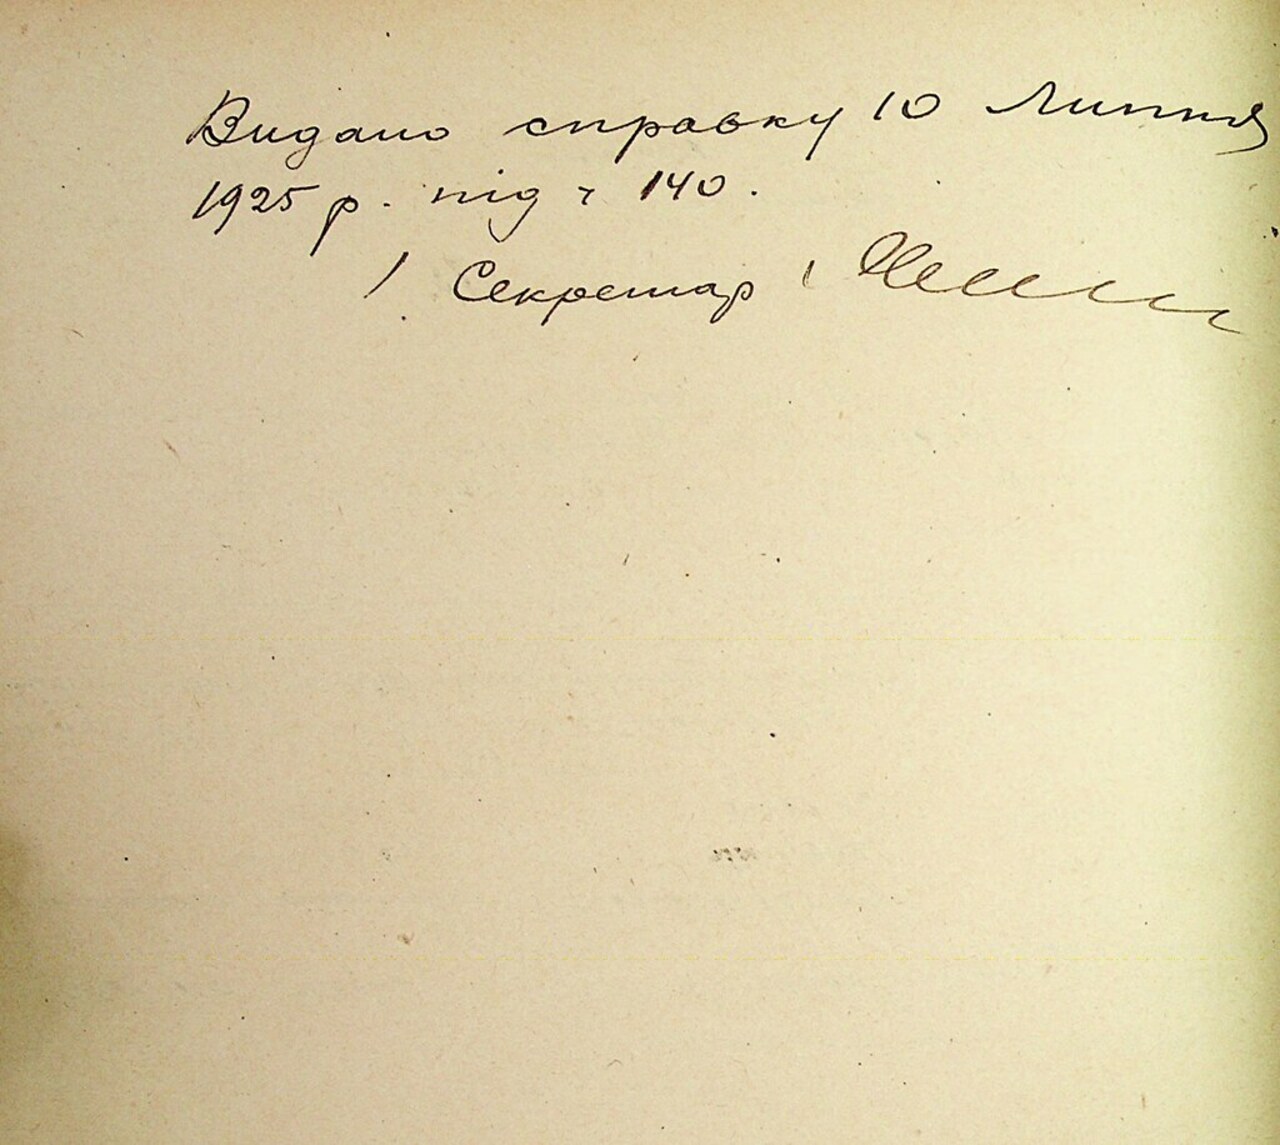 Видано справку 10 Липня
1925 р. під ч 140.
/ Секретар